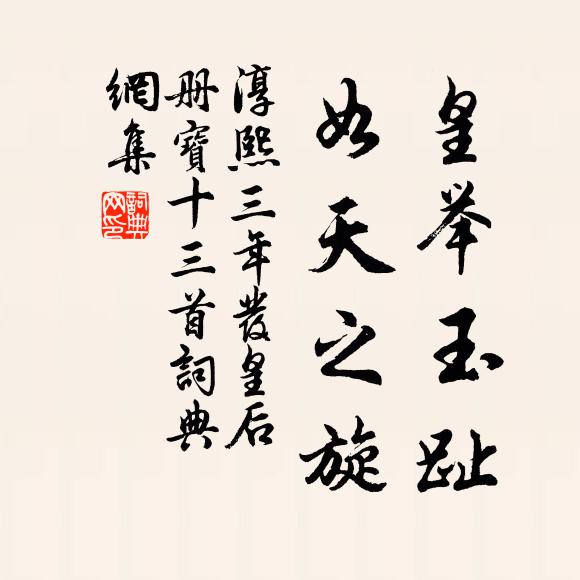 皇举玉趾
如天之旋
淳熙三年發皇后
册寶十三首詞典
網集
詞典網印